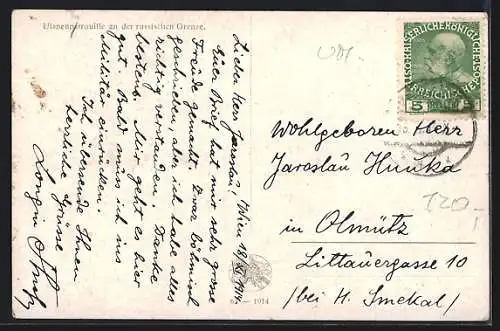 Ulanenpatrouille an der russischen Grenze.
Wien 18/XI 1914
Lieber Herr Jaroslau!
Euer Brief hat mir sehr grosse
Freude gemacht. Zwar böhmisch
geschrieben, aber ich habe alles
richtig verstanden. Danke
bestens. Mir geht es hier
gut. Bald muss ich ins
Militär einrücken.
Ich übersende Ihnen
herzliche Grüsse
Longin
KAISERLICHE KÖNIGLICHE
ÖSTERREICHISCHE POST
5 5
Wohlgeboren Herr
Jaroslau Hunka
in Olmütz
Littauergasse 10
/bei H. Smekal/
1914
120.-